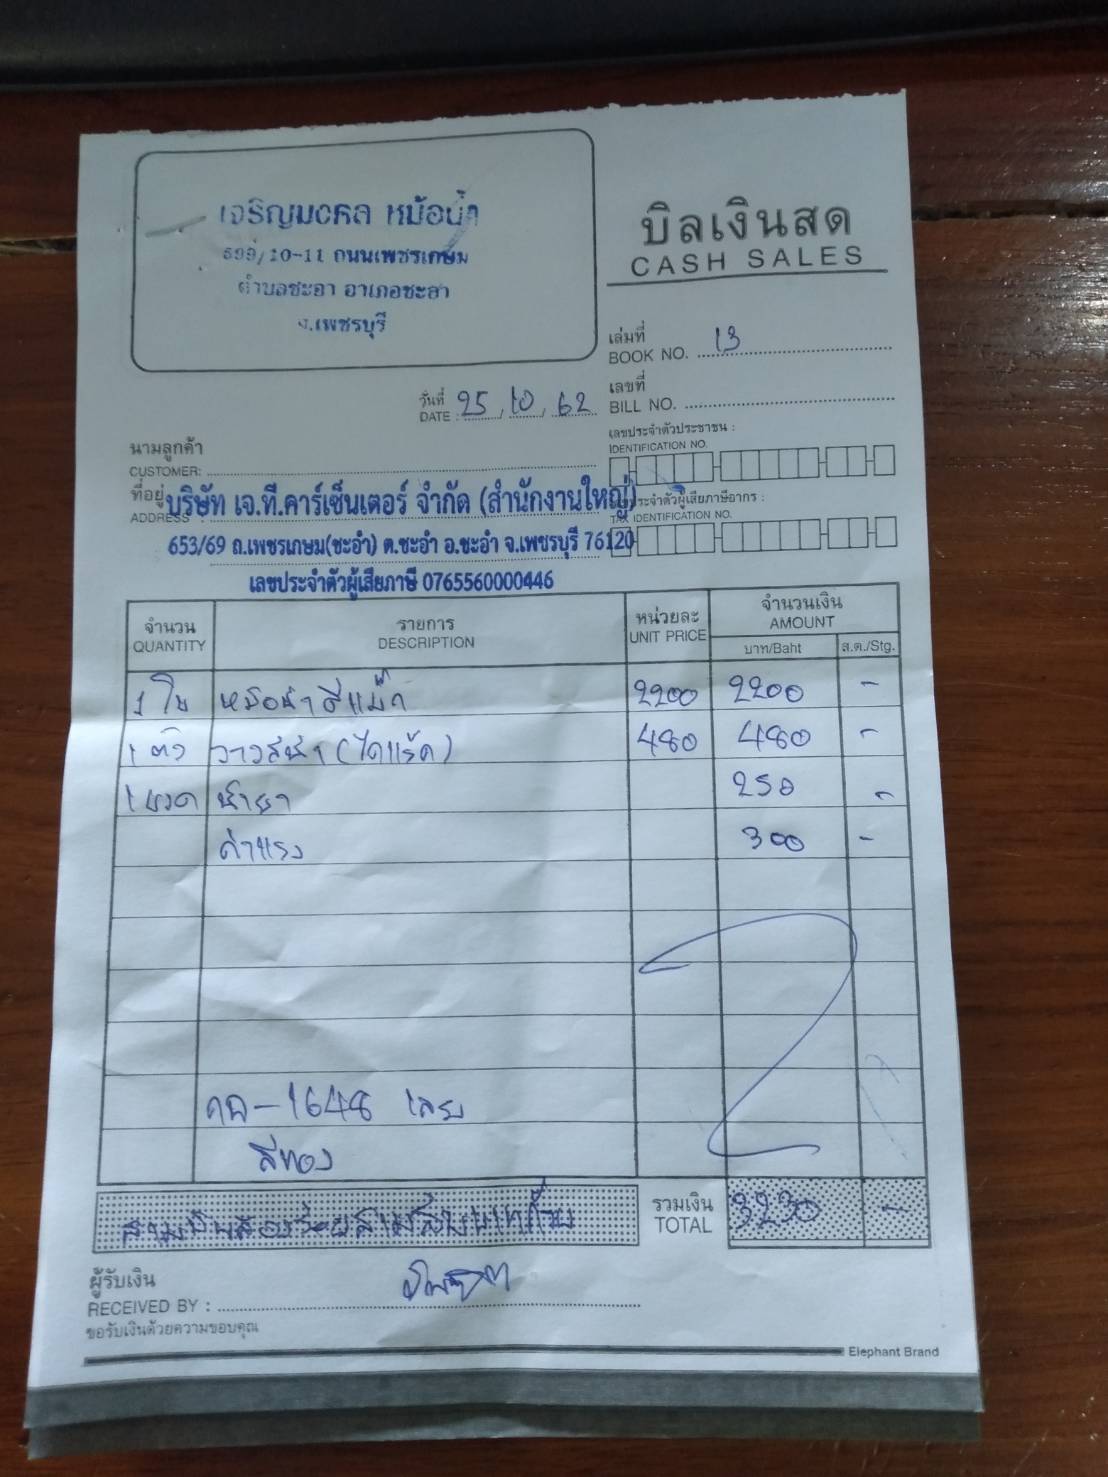 เจริญมงคล หม้อน้ำ
699/10-11 ถนนเพชรเกษม
ตำบลชะอำ อำเภอชะอำ
จ.เพชรบุรี
บิลเงินสด
CASH SALES
เล่มที่
BOOK NO. 13
เลขที่
BILL NO.
วันที่
DATE : 25, 10, 62
เลขประจำตัวประชาชน :
IDENTIFICATION NO.
นามลูกค้า
CUSTOMER:
ที่อยู่
ADDRESS :
บริษัท เจ.ที.คาร์เซ็นเตอร์ จำกัด (สำนักงานใหญ่)
เลขประจำตัวผู้เสียภาษีอากร :
TAX IDENTIFICATION NO.
653/69 ถ.เพชรเกษม(ชะอำ) ต.ชะอำ อ.ชะอำ จ.เพชรบุรี 76120
เลขประจำตัวผู้เสียภาษี 0765560000446
จำนวน รายการ หน่วยละ จำนวนเงิน
QUANTITY DESCRIPTION UNIT PRICE AMOUNT
บาท/Baht ส.ต./Stg.
1 ใบ หม้อน้ำ ดีแม็ก 2200 2200 -
1 ตัว วาวล์น้ำ (ไดแร็ค) 480 480 -
1 ขวด น้ำยา 250 -
ค่าแรง 300 -
-1648 เลย
สีทอง
สามพันสองร้อยสามสิบบาทถ้วน
รวมเงิน
TOTAL 3230 -
ผู้รับเงิน
RECEIVED BY :
ขอรับเงินด้วยความขอบคุณ
Elephant Brand